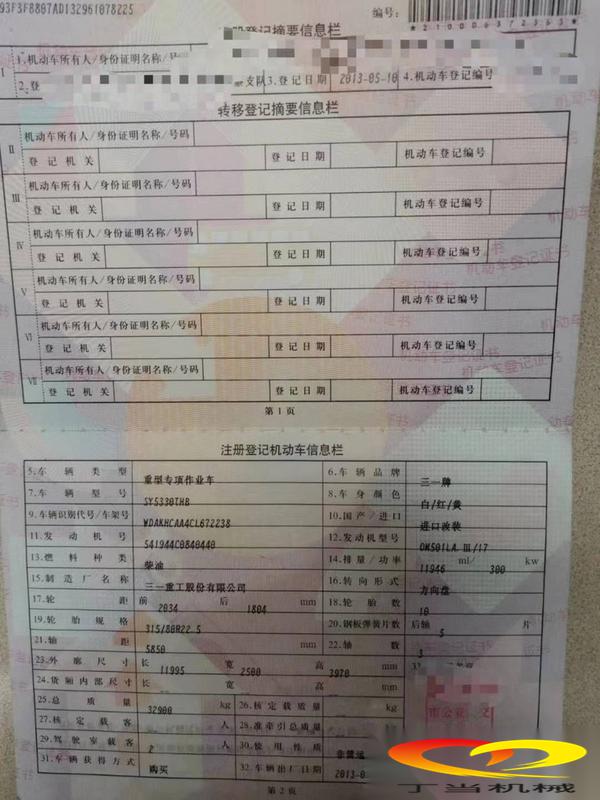 93F3F8807AD132961078225
编号:
*2100063723 63*
登记摘要信息栏
I
1.机动车所有人/身份证明名称/号
2.登 支队 3.登记日期 2013-05-10 4.机动车登记编号
转移登记摘要信息栏
II 机动车所有人/身份证明名称/号码
登记机关 登记日期 机动车登记编号
III 机动车所有人/身份证明名称/号码
登记机关 登记日期 机动车登记编号
IV 机动车所有人/身份证明名称/号码
登记机关 登记日期 机动车登记编号
V 机动车所有人/身份证明名称/号码
登记机关 登记日期 机动车登记编号
VI 机动车所有人/身份证明名称/号码
登记机关 登记日期 机动车登记编号
VII 机动车所有人/身份证明名称/号码
登记机关 登记日期 机动车登记编号
第1页
注册登记机动车信息栏
5.车辆类型 重型专项作业车 6.车辆品牌 三一牌
7.车辆型号 SY5330THB 8.车身颜色 白/红/黄
9.车辆识别代号/车架号 WDAKHCAA4CL672238 10.国产/进口 进口改装
11.发动机号 541944C0840440 12.发动机型号 OM501LA.III/17
13.燃料种类 柴油 14.排量/功率 11946 ml/ 300 kw
15.制造厂名称 三一重工股份有限公司 16.转向形式 方向盘
17.轮距 前 2034 后 1804 mm 18.轮胎数 10
19.轮胎规格 315/80R22.5 20.钢板弹簧片数 后轴 5 片
21.轴距 5850 mm 22.轴数 3
23.外廓尺寸 长 11995 宽 2500 高 3970 mm
24.货厢内部尺寸 长 宽 高 mm
25.总质量 32900 kg 26.核定载质量 kg
27.核定载客 人 28.准牵引总质量
29.驾驶室载客 2 人 30.使用性质 非营运
31.车辆获得方式 购买 32.车辆出厂日期 2013-0
第2页
丁当机械